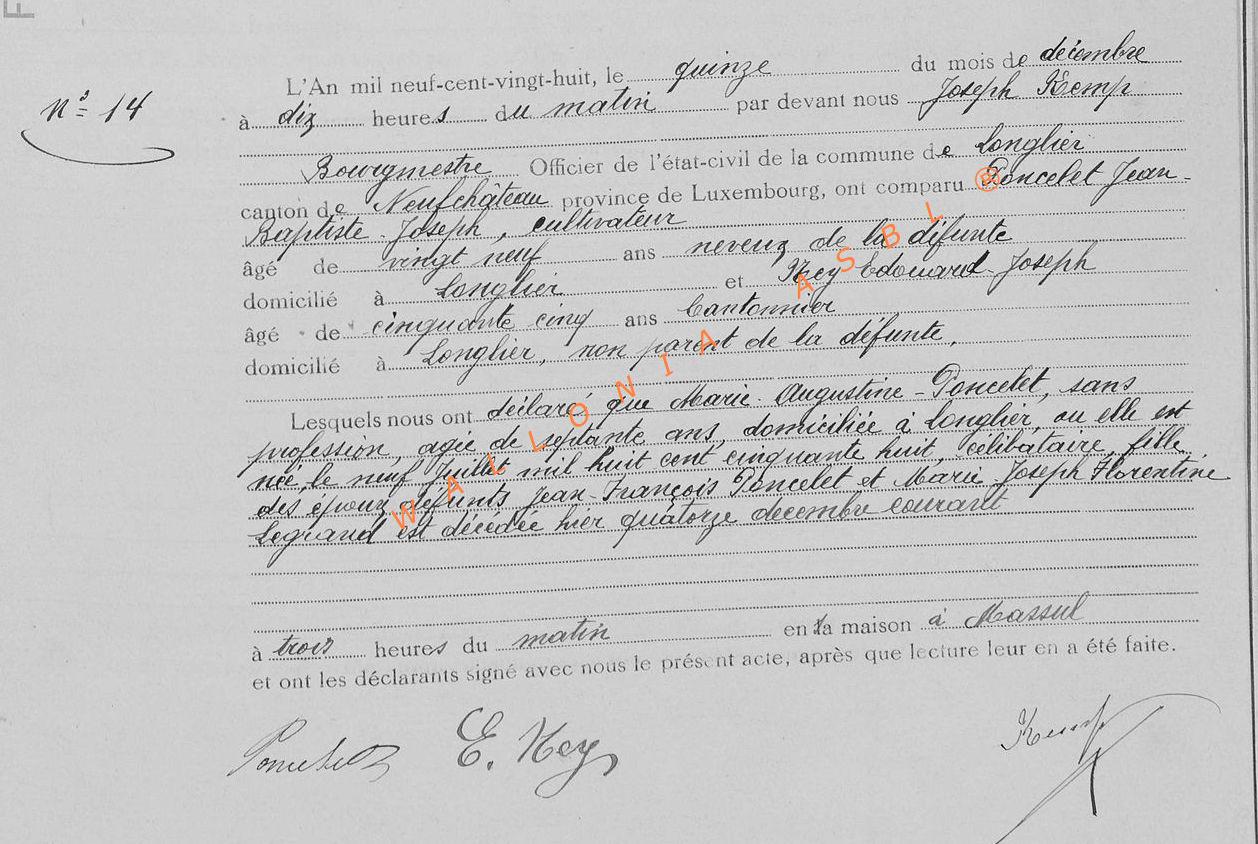 Nº 14
L'An mil neuf-cent-vingt-huit, le quinze du mois de décembre
à dix heures du matin par devant nous Joseph Kemp
Bourgmestre Officier de l'état-civil de la commune de Longlier
canton de Neufchâteau province de Luxembourg, ont comparu Poncelet Jean-
Baptiste-Joseph, cultivateur
âgé de vingt neuf ans neveux de la défunte
domicilié à Longlier et Ney Edouard-Joseph
âgé de cinquante cinq ans Cantonnier
domicilié à Longlier, non parent de la défunte.
Lesquels nous ont déclaré que Marie-Augustine-Poncelet, sans
profession, agée de septante ans, domiciliée à Longlier, ou elle est
née, le neuf Juillet mil huit cent cinquante huit, célibataire, fille
des époux défunts Jean-François Poncelet et Marie Joseph Florentine
Legrand est décédée hier quatorze decembre courant
à trois heures du matin en la maison à Massul
et ont les déclarants signé avec nous le présent acte, après que lecture leur en a été faite.
Poncelet E. Ney Kemp
WALLONIA ASBL ®